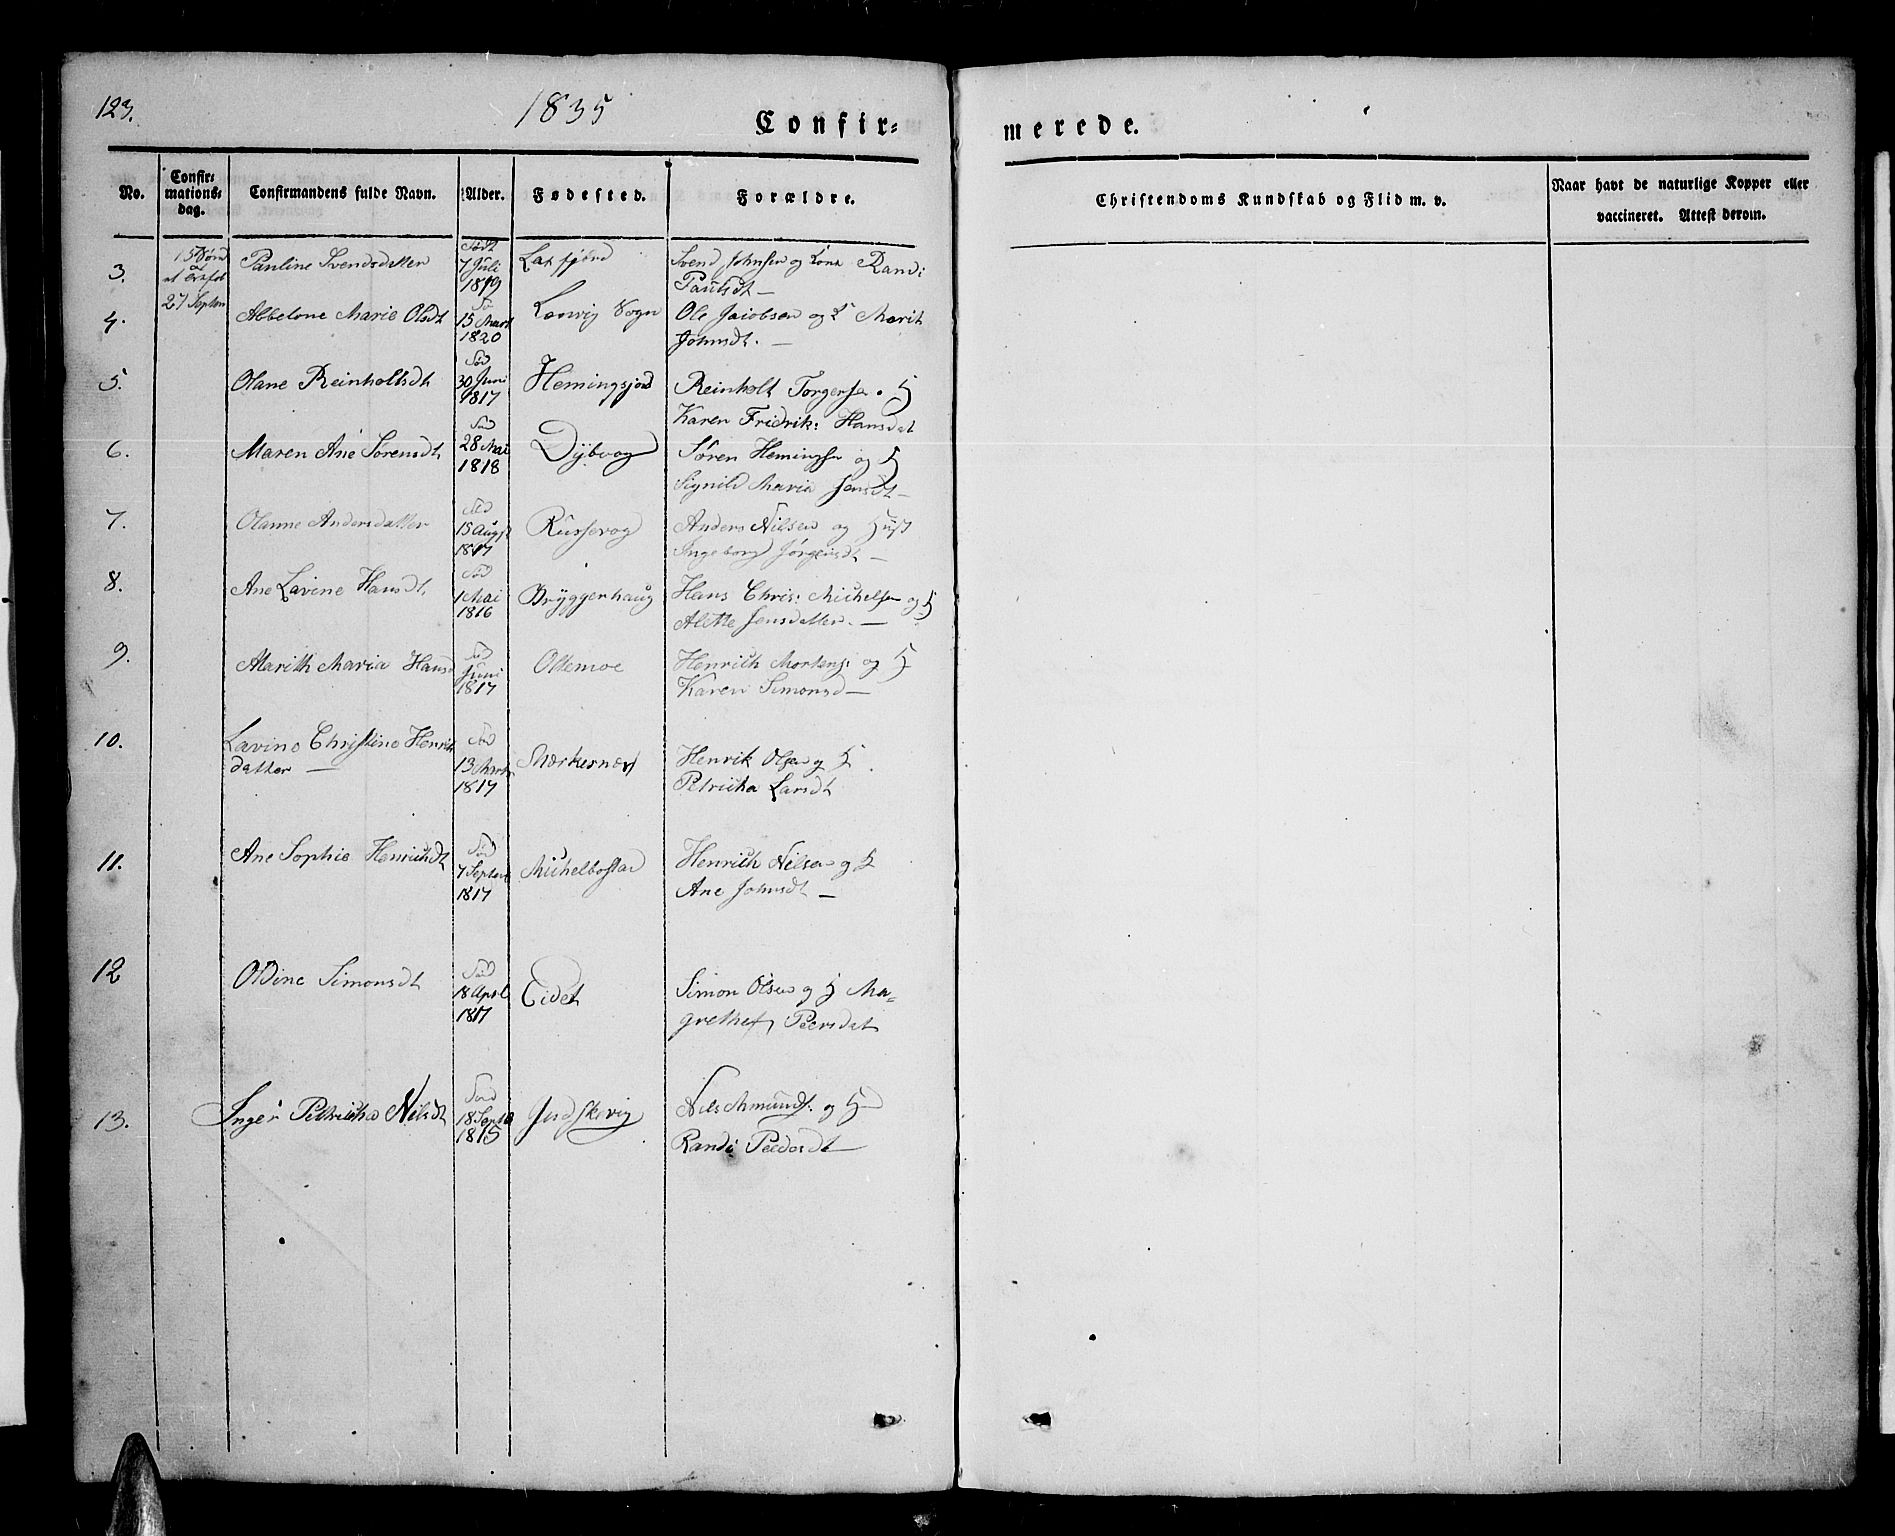 123.
1835
Confir=
merede.
No.
Confir-
mations-
dag.
Confirmandens fulde Navn.
Alder.
Fødested.
Forældre.
Christendoms Kundskab og Flid m. v.
Naar havt de naturlige Kopper eller
vaccineret. Attest derom.
3.
27 Septbr
Pauline Svendsdatter
Født
7 Juli
1819
Laxfjord
Svend Johnsen og Kone Randi
Paulsdt —
4.
Abbelone Marie Olsdt
15 Mart
1820
Sogn
Ole Jacobsen og K Marit
Johnsdt. —
5.
Olane Reinholtsdt
Død
30 Juni
1817
Hemingsjord
Reinholt Torgersen. H
Karen Fridrik: Hansdat
6.
Maren Ane Sørensdt
28 Mai
1818
Dybvog
Søren Hemingsen og H
Signild Maria Jensdt —
7.
Olanne Andersdatter
15 Augst
1817
Russevog
Anders Nilsen og Hust
Ingeborg Jørgensdt —
8.
Ane Lavine Hansdt
1 Mai
1816
Bryggerhaug
Hans Chris: Michelsen og H
Alette Jensdatter. —
9.
Marith Maria Hansd
Juni
1817
Ollemoe
Henrich Mortens: og H
Karen Simonsd —
10.
Lavine Christine Henrik
datter —
13 Marts
1817
Stærkesnæs
Henrik Olsen og H.
Petricha Larsdt
11.
Ane Sophie Henrichdt
7 Septbr
1817
Michelbostad
Henrich Nilsen og H
Ane Johnsdt —
12
Oldine Simonsdt
18 April
1817
Eidet
Simon Olsen og H Ma=
grethe Peersdat
13.
Inger Petricha Nilsdt
18 Septb
1815
Jndskevig
Nils Amunds: og H
Randi Pedersdt